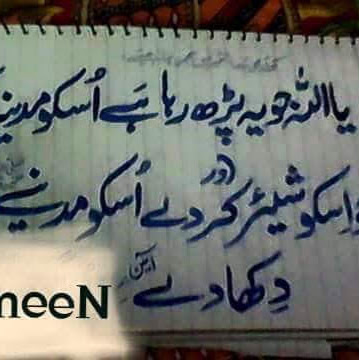 یا اللہ جو یہ پڑھ رہا ہے اُسکو مدینے
اور
اِسکو شیئر کردے اُسکو مدینے
دِکھادے آمین
meeN